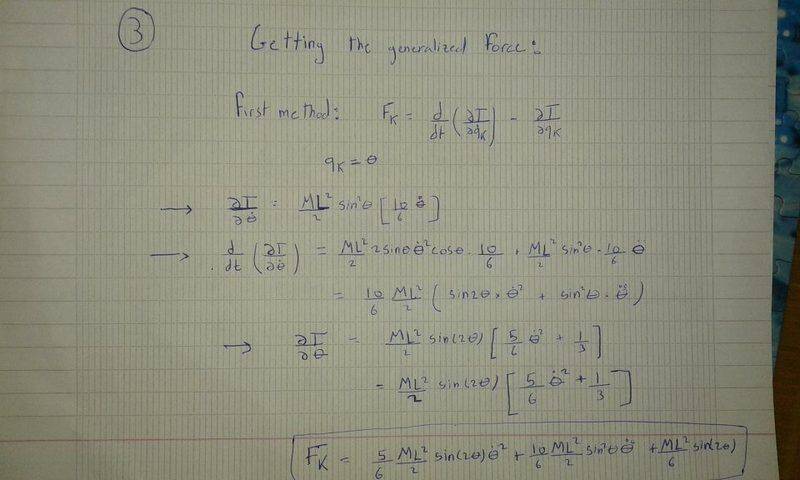 ③ Getting the generalized Force:
First method: F_K = d/dt (∂T/∂q̇_K) - ∂T/∂q_K
q_K = θ
→ ∂T/∂θ̇ = ML²/2 sin²θ [10/6 θ̇]
→ d/dt (∂T/∂θ̇) = ML²/2 2sinθ θ̇² cosθ . 10/6 + ML²/2 sin²θ . 10/6 θ̈
= 10/6 ML²/2 (sin2θ × θ̇² + sin²θ . θ̈)
→ ∂T/∂θ = ML²/2 sin(2θ) [5/6 θ̇² + 1/3]
= ML²/2 sin(2θ) [5/6 θ̇² + 1/3]
F_K = 5/6 ML²/2 sin(2θ) θ̇² + 10/6 ML²/2 sin²θ θ̈ + ML²/6 sin(2θ)